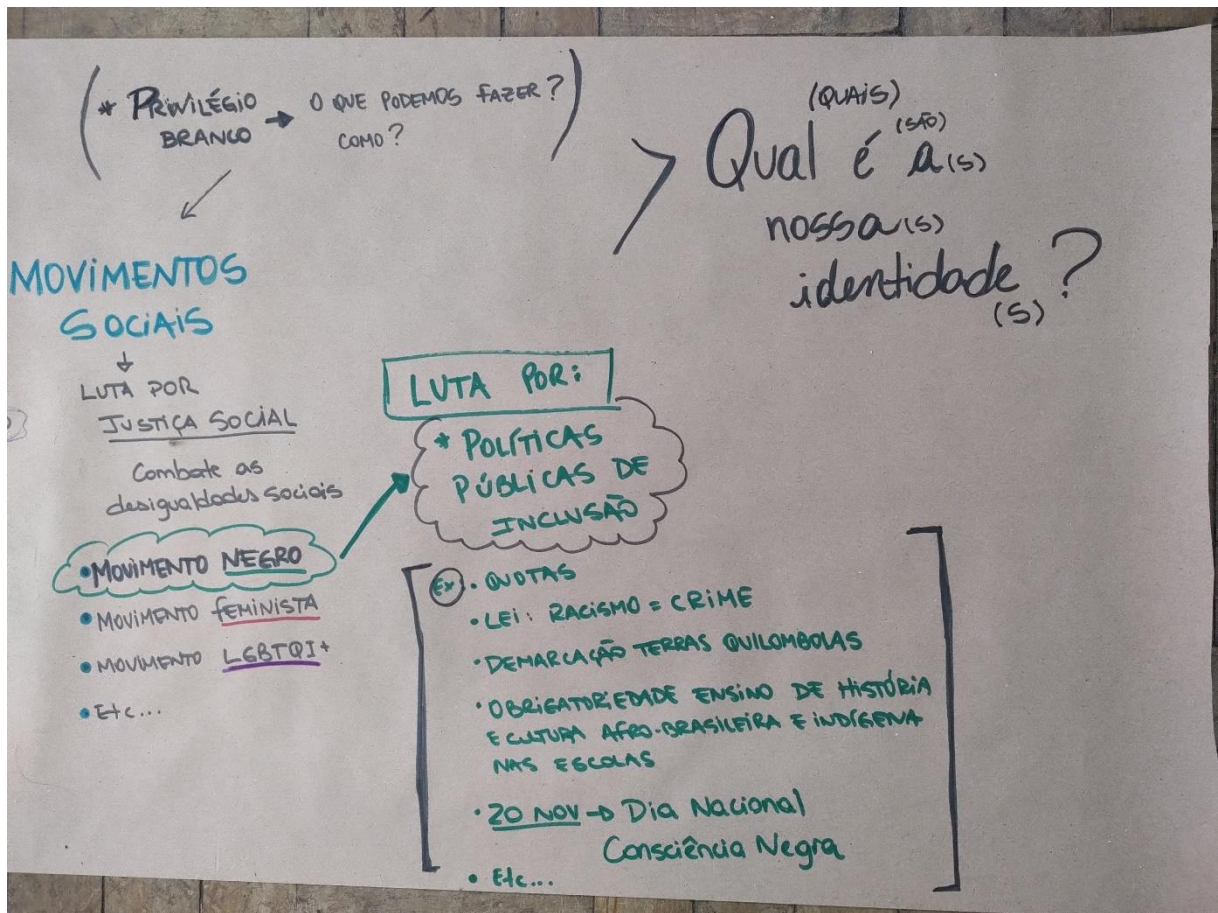 (* PRIVILÉGIO → O QUE PODEMOS FAZER?
BRANCO COMO?)
MOVIMENTOS
SOCIAIS
LUTA POR
JUSTIÇA SOCIAL
Combate as
desigualdades sociais
• MOVIMENTO NEGRO
• MOVIMENTO FEMINISTA
• MOVIMENTO LGBTQI+
• Etc...
LUTA POR:
* POLÍTICAS
PÚBLICAS DE
INCLUSÃO
Ex • QUOTAS
• LEI: RACISMO = CRIME
• DEMARCAÇÃO TERRAS QUILOMBOLAS
• OBRIGATORIEDADE ENSINO DE HISTÓRIA
E CULTURA AFRO-BRASILEIRA E INDÍGENA
NAS ESCOLAS
• 20 NOV → Dia Nacional
Consciência Negra
• Etc...
(QUAIS)
(SÃO)
> Qual é a(s)
nossa(s)
identidade ?
(S)